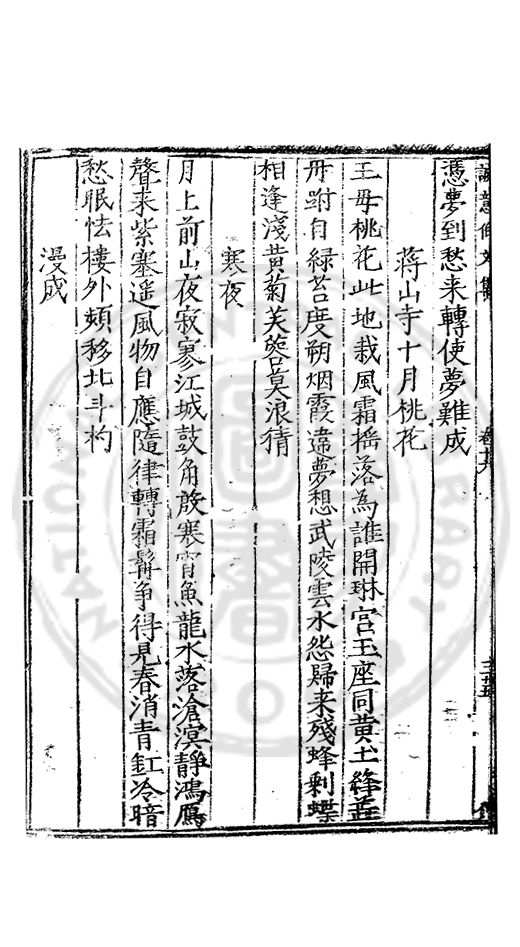 誠意伯文集 卷十六
憑夢到愁来轉使夢難成
蔣山寺十月桃花
王母桃花此地栽風霜揺落為誰開琳宫玉座同黄土絳蕚
丹跗自緑苔度朔烟霞違夢想武陵雲水怨歸来殘蜂剩蝶
相逢淺黄菊芙蓉莫浪猜
寒夜
月上前山夜寂寥江城鼓角殷寒宵魚龍水落滄溟靜鴻鴈
聲来紫塞遥風物自應隨律轉霜髩争得見春消青釭冷暗
愁眠怯樓外頻移北斗杓
漫成